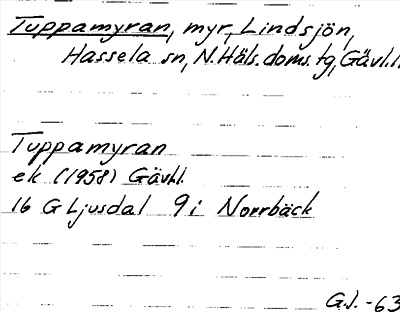 Tuppamyran, myr, Lindsjön,
Hassela sn, N. Häls. doms. tg, Gävl.l.
Tuppamyran
ek (1958) Gävl.l.
16 G Ljusdal 9 i Norrbäck
G.J. -63